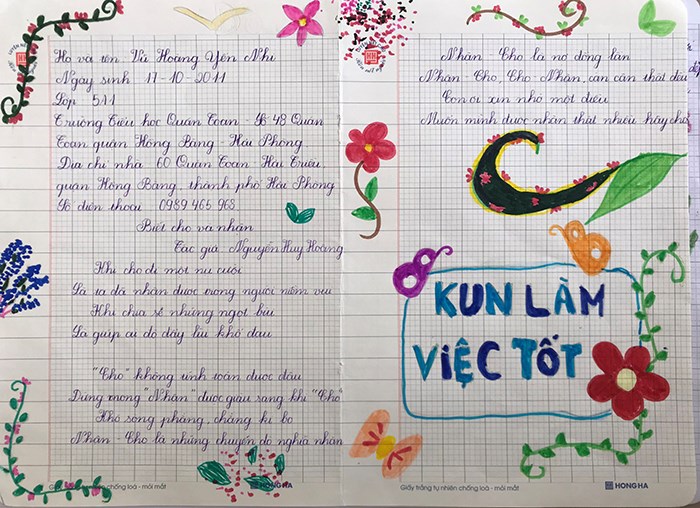 Họ và tên Vũ Hoàng Yến Nhi
Ngày sinh 17-10-2011
Lớp 5A1
Trường Tiểu học Quán Toan - Số 48 Quán
Toan quận Hồng Bàng - Hải Phòng
Địa chỉ nhà 60 Quán Toan - Hải Triều,
quận Hồng Bàng, thành phố Hải Phòng
Số điện thoại 0989 465 968
Biết cho và nhận
Tác giả Nguyễn Huy Hoàng
Khi cho đi một nụ cười
Là ta đã nhận được trong người niềm vui
Khi chia sẻ những ngọt bùi
Là giúp ai đó đẩy lùi khổ đau
"Cho" không tính toán được đâu
Đừng mong "Nhận" được giàu sang khi "Cho"
Hãy sống phẳng, chẳng ki bo
Nhận - Cho là những chuyến đò nghĩa nhân
Giấy trắng tự nhiên chống loá - mỏi mắt
HONG HA
Nhận - Cho là nợ đồng lần
Nhận - Cho, Cho - Nhận, cán cân thật đều
Con ơi xin nhớ một điều
Muốn mình được nhận thật nhiều hãy cho
KUN LÀM
VIỆC TỐT
Giấy trắng tự nhiên chống loá - mỏi mắt
HONG HA